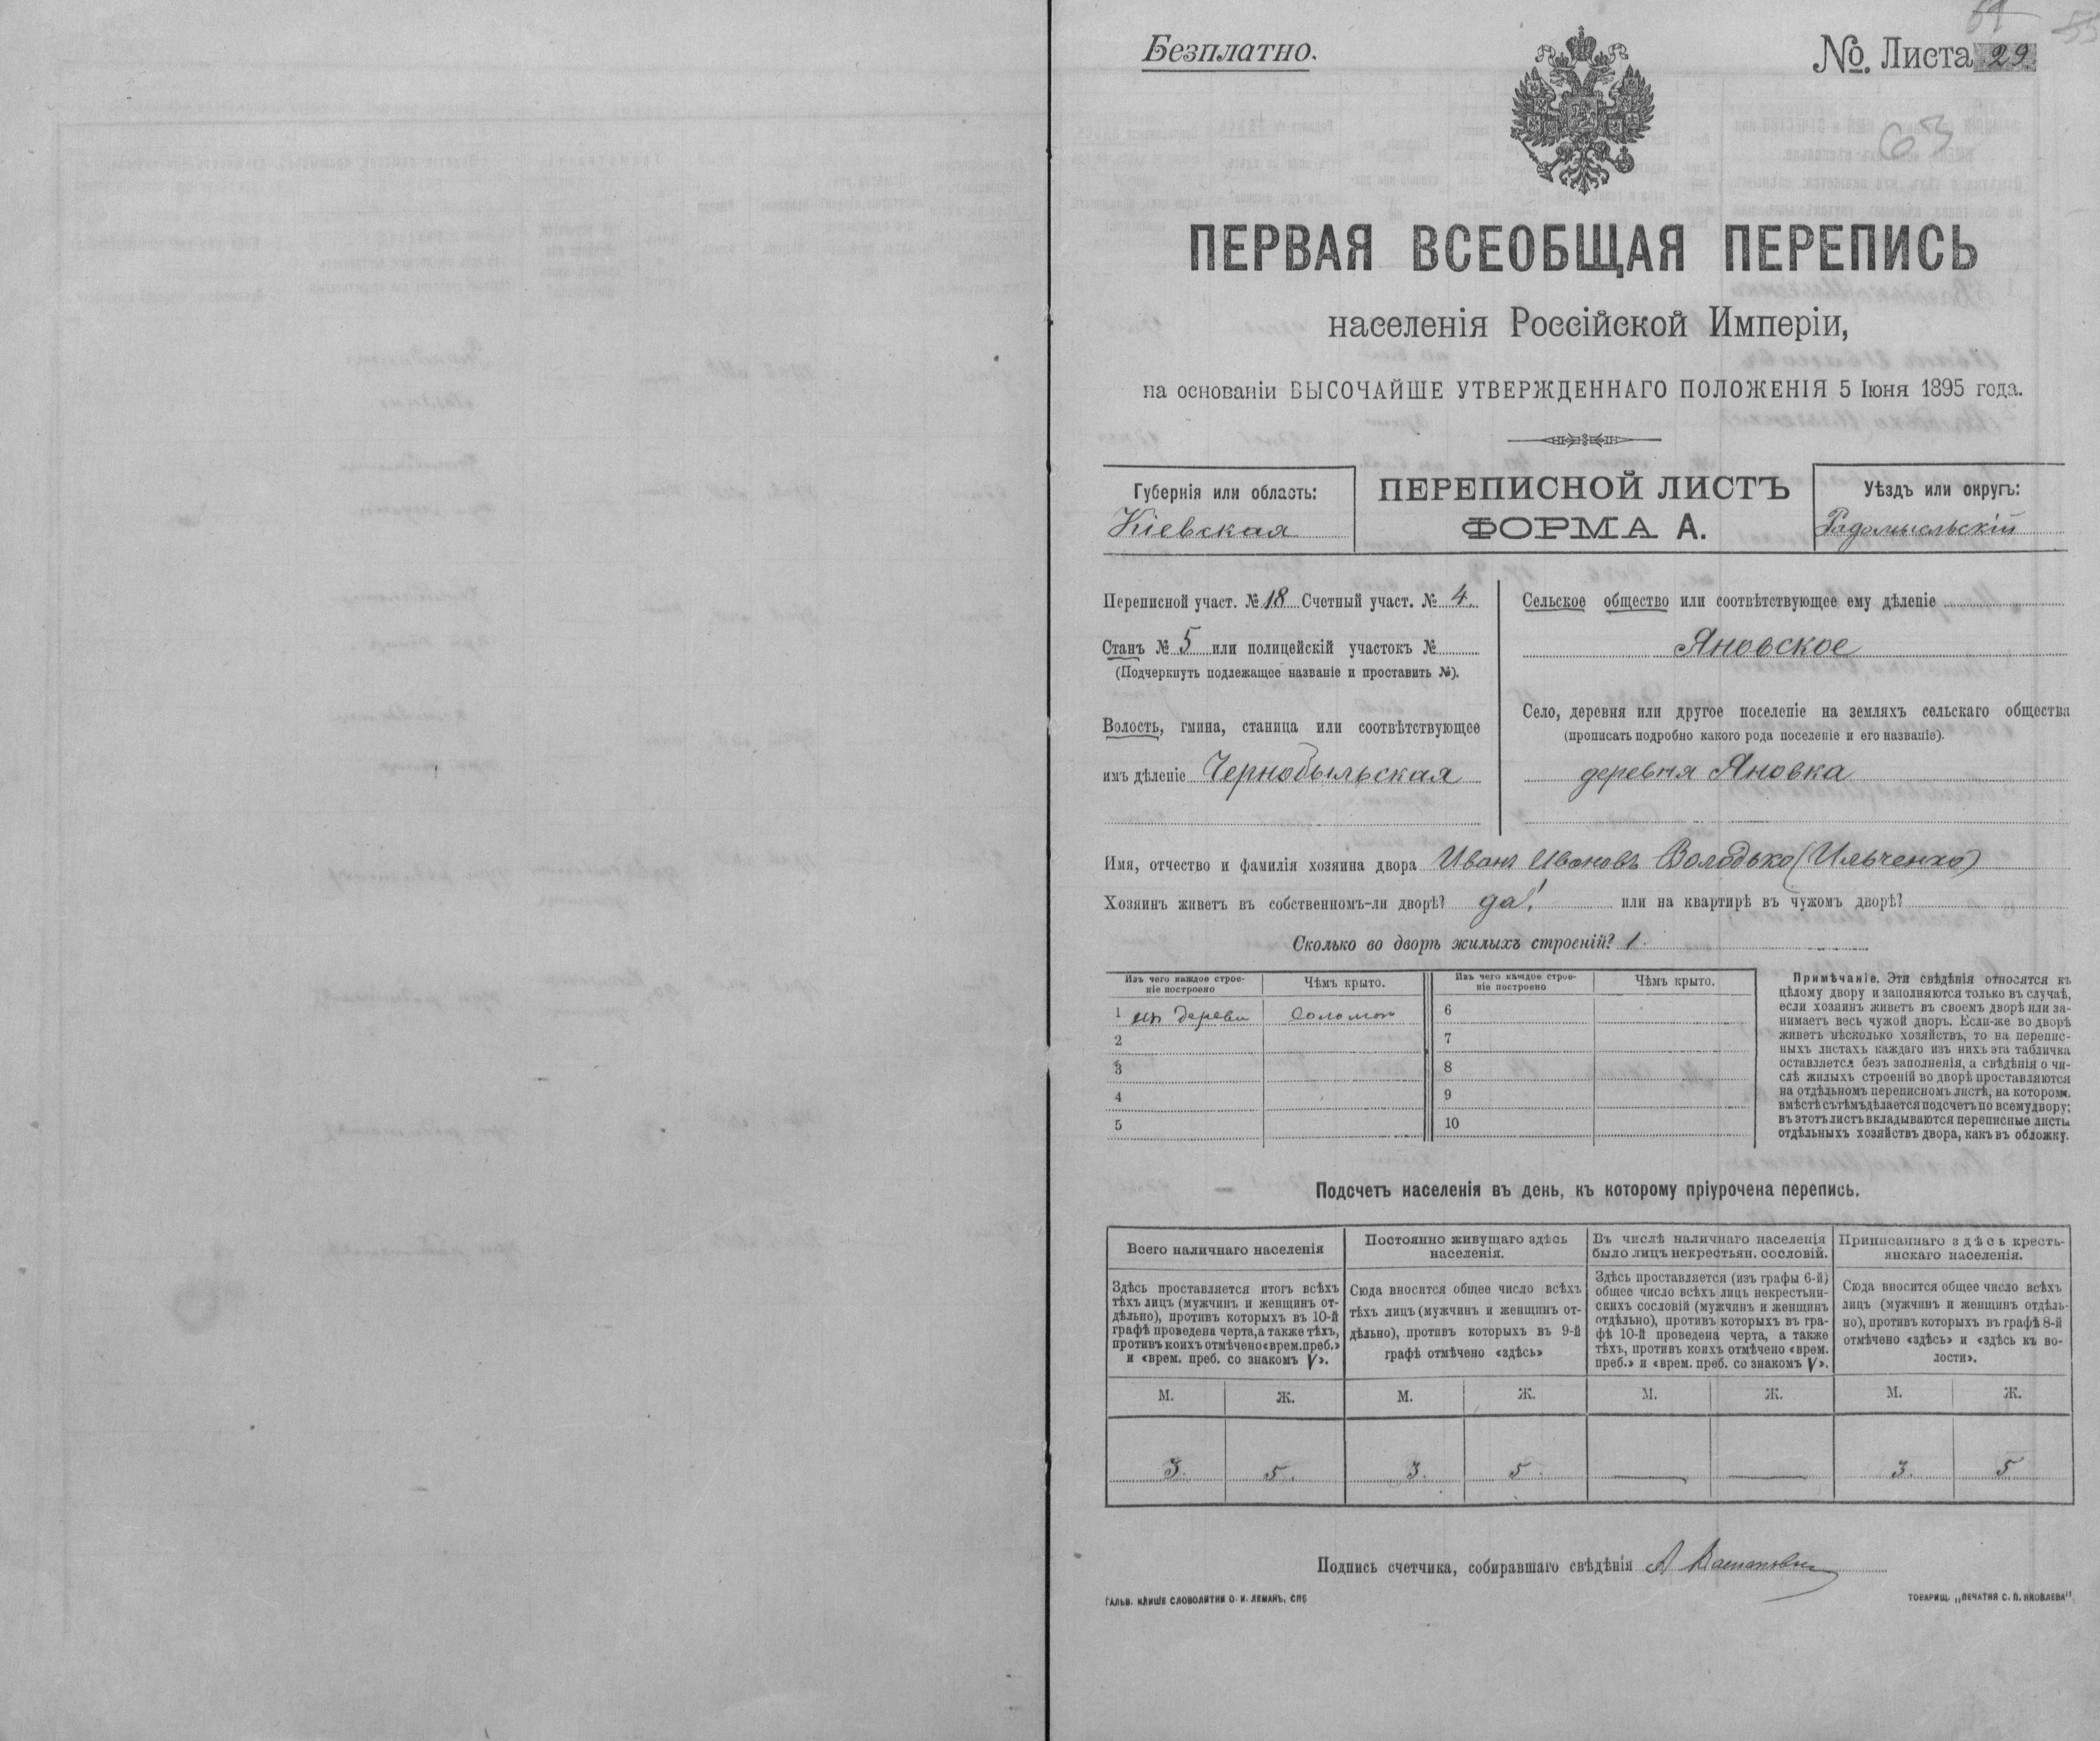 Безплатно.
№ Листа 29
ПЕРВАЯ ВСЕОБЩАЯ ПЕРЕПИСЬ
населенія Россійской Имперіи,
на основаніи ВЫСОЧАЙШЕ УТВЕРЖДЕННАГО ПОЛОЖЕНІЯ 5 Іюня 1895 года.
Губернія или область:
Кіевская
ПЕРЕПИСНОЙ ЛИСТЪ
ФОРМА А.
Уѣздъ или округъ:
Радомысльскій
Переписной участ. № 18 Счетный участ. № 4.
Станъ № 5 или полицейскій участокъ №
(Подчеркнуть подлежащее названіе и проставить №).
Волость, гмина, станица или соотвѣтствующее
имъ дѣленіе Чернобыльская
Сельское общество или соотвѣтствующее ему дѣленіе
Яновское
Село, деревня или другое поселеніе на земляхъ сельскаго общества
(прописать подробно какого рода поселеніе и его названіе).
деревня Яновка
Имя, отчество и фамилія хозяина двора Иванъ Ивановъ Володько (Ильченко)
Хозяинъ живетъ въ собственномъ-ли дворѣ? да! или на квартирѣ въ чужомъ дворѣ?
Сколько во дворѣ жилыхъ строеній? 1.
Изъ чего каждое строе-
ніе построено
Чѣмъ крыто.
Изъ чего каждое строе-
ніе построено
Чѣмъ крыто.
1 изъ дерева соломою 6
2 7
3 8
4 9
5 10
Примѣчаніе. Эти свѣдѣнія относятся къ
цѣлому двору и заполняются только въ случаѣ,
если хозяинъ живетъ въ своемъ дворѣ или за-
нимаетъ весь чужой дворъ. Если-же во дворѣ
живетъ нѣсколько хозяйствъ, то на перепис-
ныхъ листахъ каждаго изъ нихъ эта табличка
оставляется безъ заполненія, а свѣдѣнія о чи-
слѣ жилыхъ строеній во дворѣ проставляются
на отдѣльномъ переписномъ листѣ, на которомъ
вмѣстѣ съ тѣмъ дѣлается подсчетъ по всему двору;
въ этотъ листъ вкладываются переписные листы
отдѣльныхъ хозяйствъ двора, какъ въ обложку.
Подсчетъ населенія въ день, къ которому пріурочена перепись.
Всего наличнаго населенія
Здѣсь проставляется итогъ всѣхъ
тѣхъ лицъ (мужчинъ и женщинъ от-
дѣльно), противъ которыхъ въ 10-й
графѣ проведена черта, а также тѣхъ,
противъ коихъ отмѣчено «врем. преб.»
и «врем. преб. со знакомъ V».
Постоянно живущаго здѣсь
населенія.
Сюда вносится общее число всѣхъ
тѣхъ лицъ (мужчинъ и женщинъ от-
дѣльно), противъ которыхъ въ 9-й
графѣ отмѣчено «здѣсь»
Въ числѣ наличнаго населенія
было лицъ некрестьян. сословій.
Здѣсь проставляется (изъ графы 6-й)
общее число всѣхъ лицъ некрестьян-
скихъ сословій (мужчинъ и женщинъ
отдѣльно), противъ которыхъ въ гра-
фѣ 10-й проведена черта, а также
тѣхъ, противъ коихъ отмѣчено «врем.
преб.» и «врем. преб. со знакомъ V».
Приписаннаго здѣсь кресть-
янскаго населенія.
Сюда вносится общее число всѣхъ
лицъ (мужчинъ и женщинъ отдѣль-
но), противъ которыхъ въ графѣ 8-й
отмѣчено «здѣсь» и «здѣсь къ во-
лости».
М. Ж. М. Ж. М. Ж. М. Ж.
3. 5. 3. 5. — — 3. 5
Подпись счетчика, собиравшаго свѣдѣнія
ГАЛЬВ. КЛИШЕ СЛОВОЛИТНИ О. И. ЛЕМАНЪ, СПБ
ТОВАРИЩ. „ПЕЧАТНЯ С. П. ЯКОВЛЕВА"